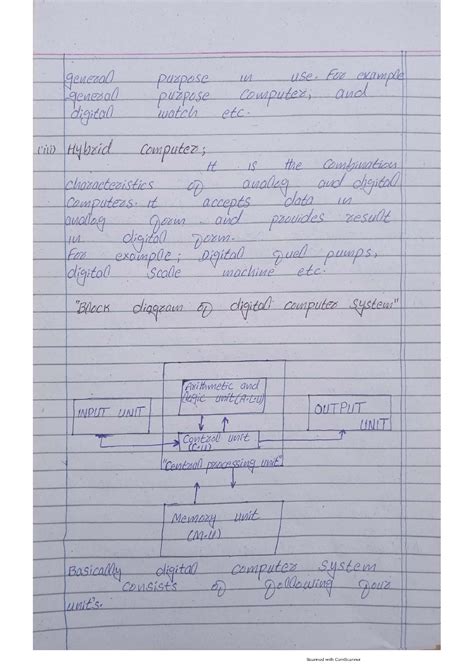 general purpose in use. For example
general purpose computer, and
digital watch etc.
(iii) Hybrid Computer;
It is the combination
characteristics of analog and digital
computers. it accepts data in
analog form and provides result
in digital form.
For example; Digital fuel pumps,
digital scale machine etc.
"Block diagram of digital computer system"
Arithmetic and
logic unit (A.L.U)
INPUT UNIT
OUTPUT
UNIT
Control unit
(C.U)
"Central processing unit"
Memory unit
(M.U)
Basically digital computer system
consists of following four
unit's.
Scanned with CamScanner